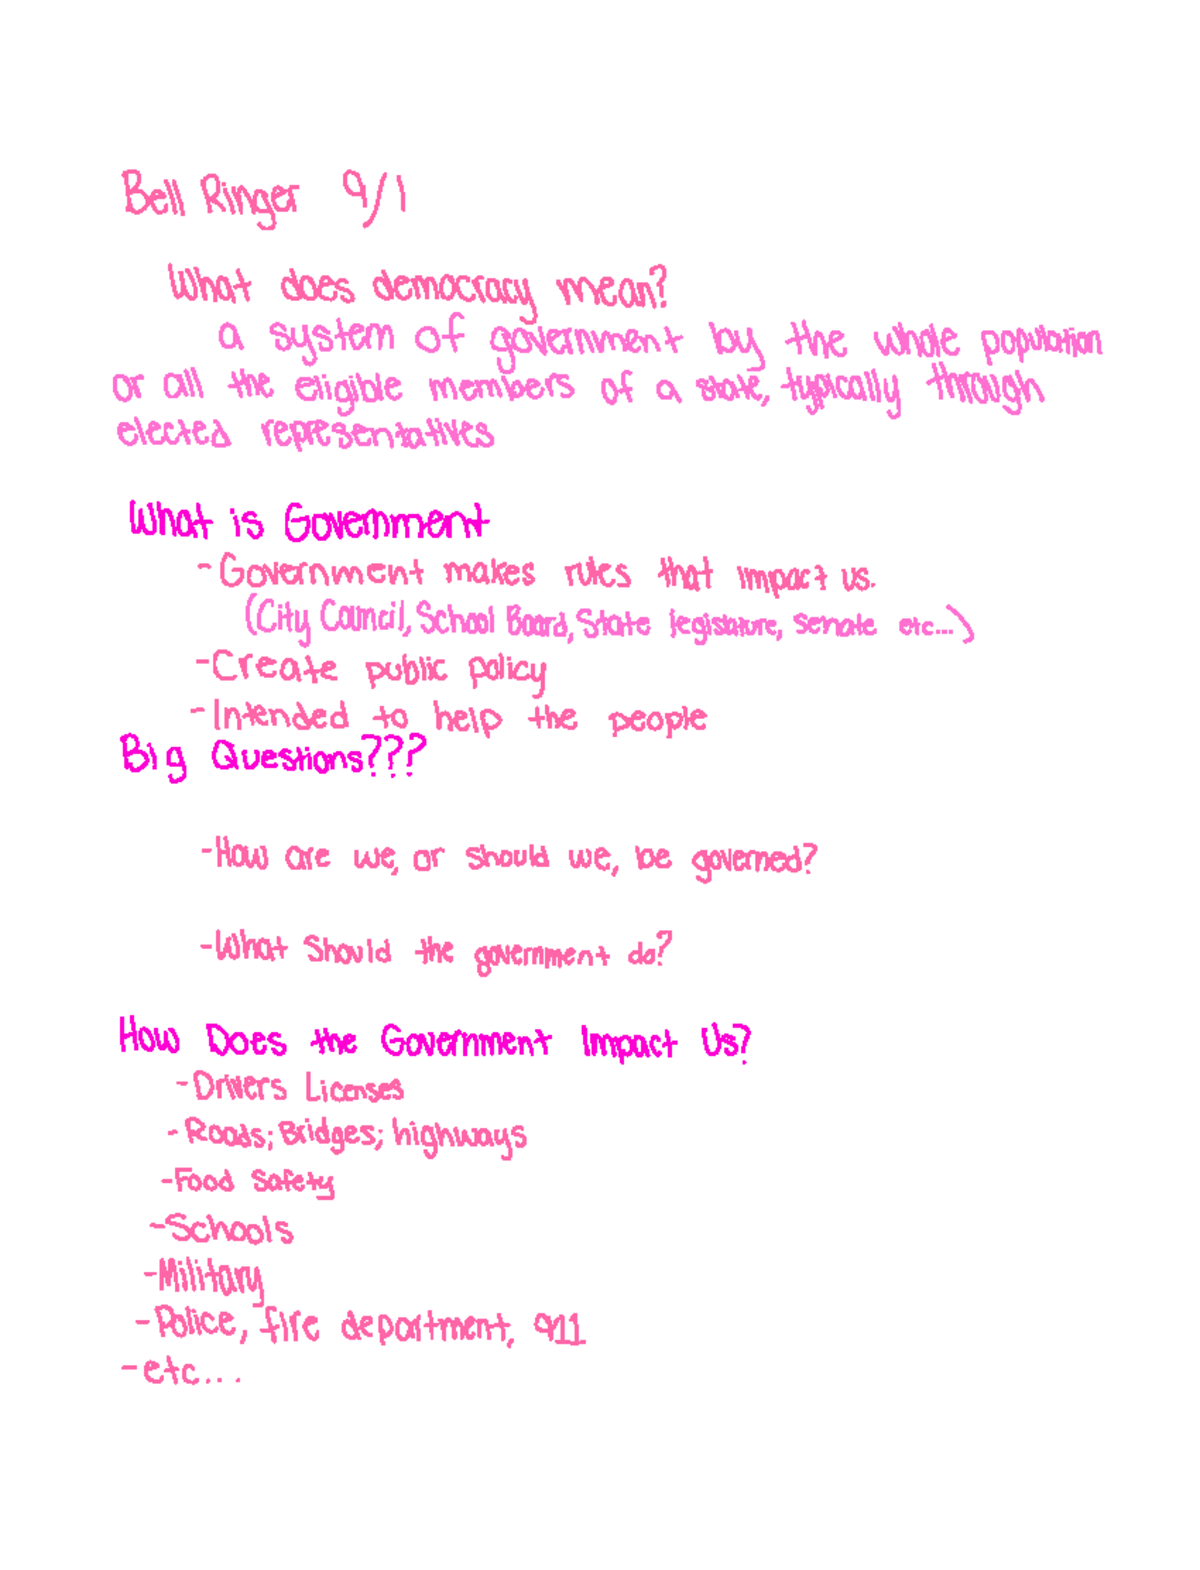 Bell Ringer 9/1
What does democracy mean?
a system of government by the whole population
or all the eligible members of a state, typically through
elected representatives
What is Government
- Government makes rules that impact us.
(City Council, School Board, State legislature, senate etc...)
- Create public policy
- Intended to help the people
Big Questions???
- How are we, or should we, be governed?
- What Should the government do?
How Does the Government Impact Us?
- Drivers Licenses
- Roads; Bridges; highways
- Food Safety
- Schools
- Military
- Police, fire department, 911
- etc...